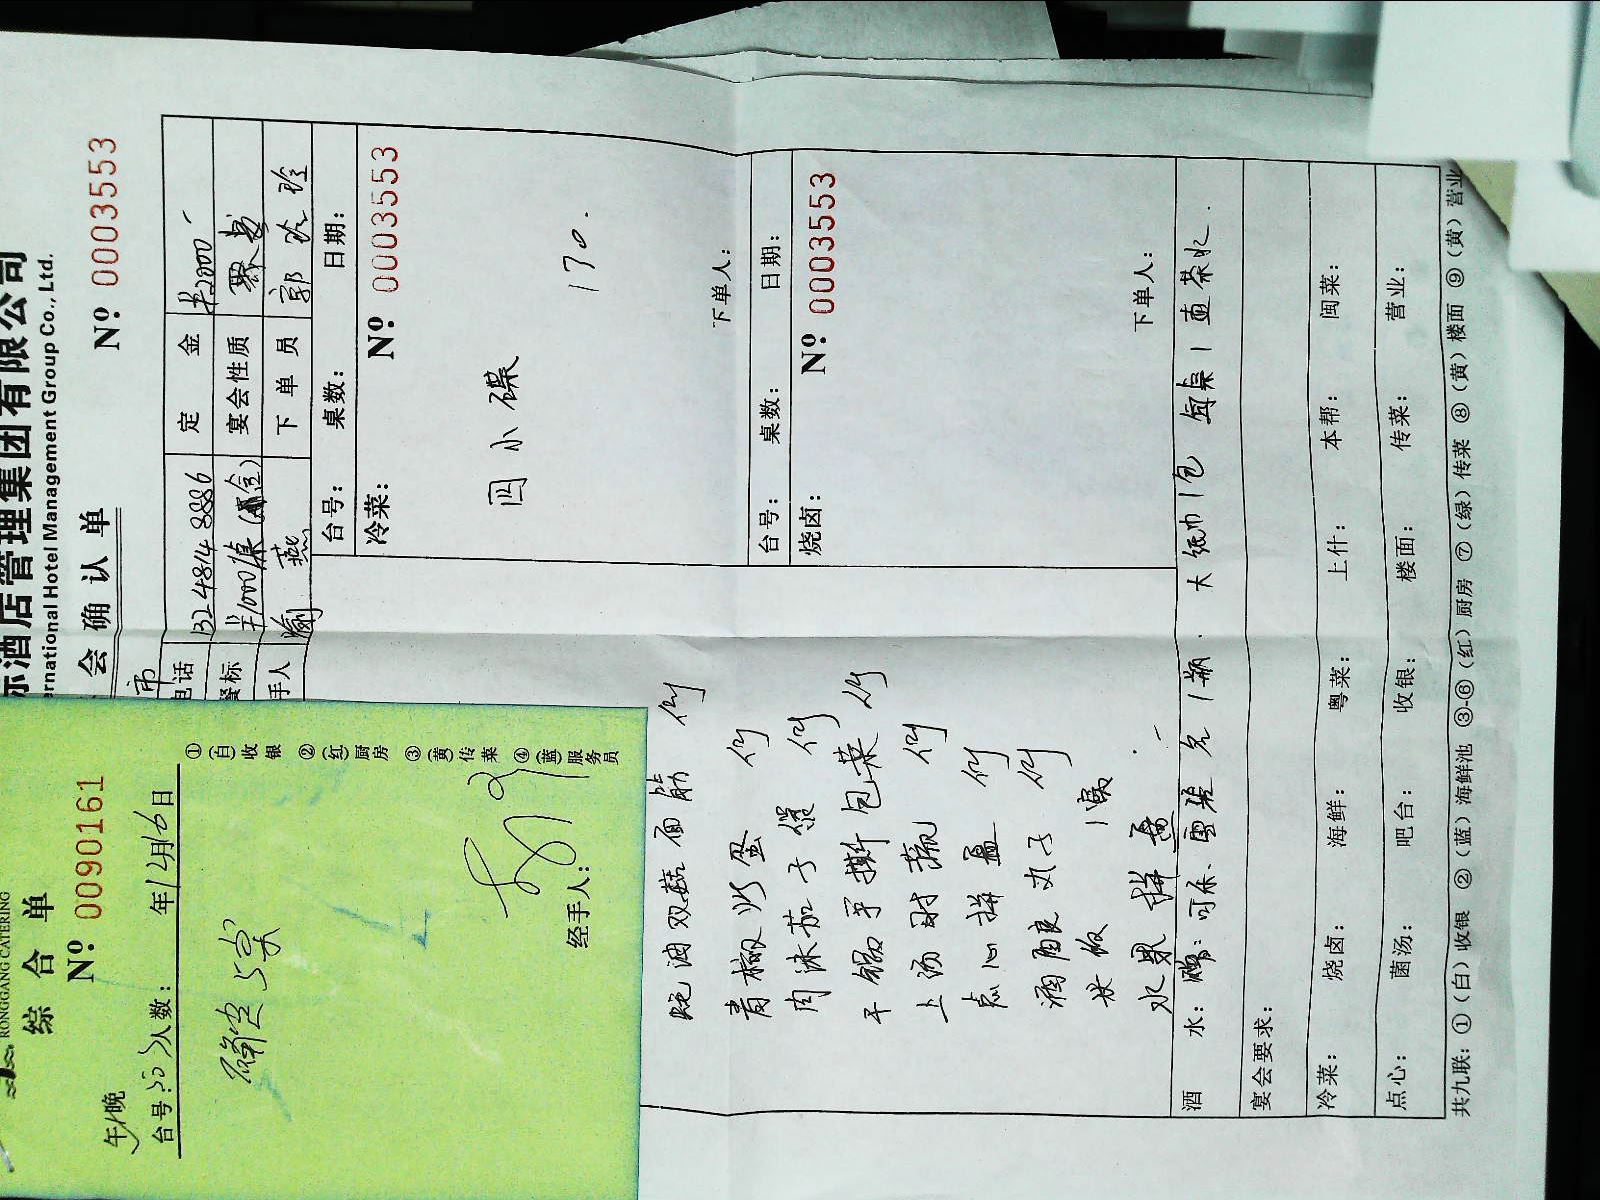 际酒店管理集团有限公司
ernational Hotel Management Group Co., Ltd.
会确认单
Nº 0003553
市
电话 13248148886 定金 ¥2000-
餐标 ¥1000/桌 宴会性质 聚会
手人 燕 下单员 郭玲玲
台号： 桌数： 日期：
冷菜： Nº 0003553
四小碟
170.
下单人：
台号： 桌数： 日期：
烧卤： Nº 0003553
下单人：
烧油双菇面筋 例
青椒炒蛋 例
肉沫茄子煲 例
干锅手撕包菜 例
上汤时蔬 例
点心拼盘 例
酒酿丸子 例
米饭 1锅
水果拼盘
酒水： 可乐、雪碧各1瓶. 大纸巾1包 每桌1壶茶水.
宴会要求：
冷菜： 烧卤： 海鲜： 粤菜： 上什： 本帮： 闽菜：
点心： 菌汤： 吧台： 收银： 楼面： 传菜： 营业：
共九联：①（白）收银 ②（蓝）海鲜池 ③-⑥（红）厨房 ⑦（绿）传菜 ⑧（黄）楼面 ⑨（黄）营业
RONGGANG CATERING
综合单
Nº 0090161
午/晚
台号： 人数： 年12月6日
确定5桌
经手人：
①（白）收银
②（红）厨房
③（黄）传菜
④（蓝）服务员